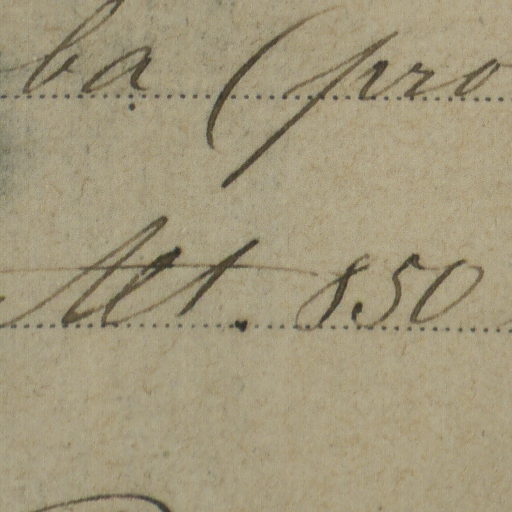 ba (pro
Alt. 850